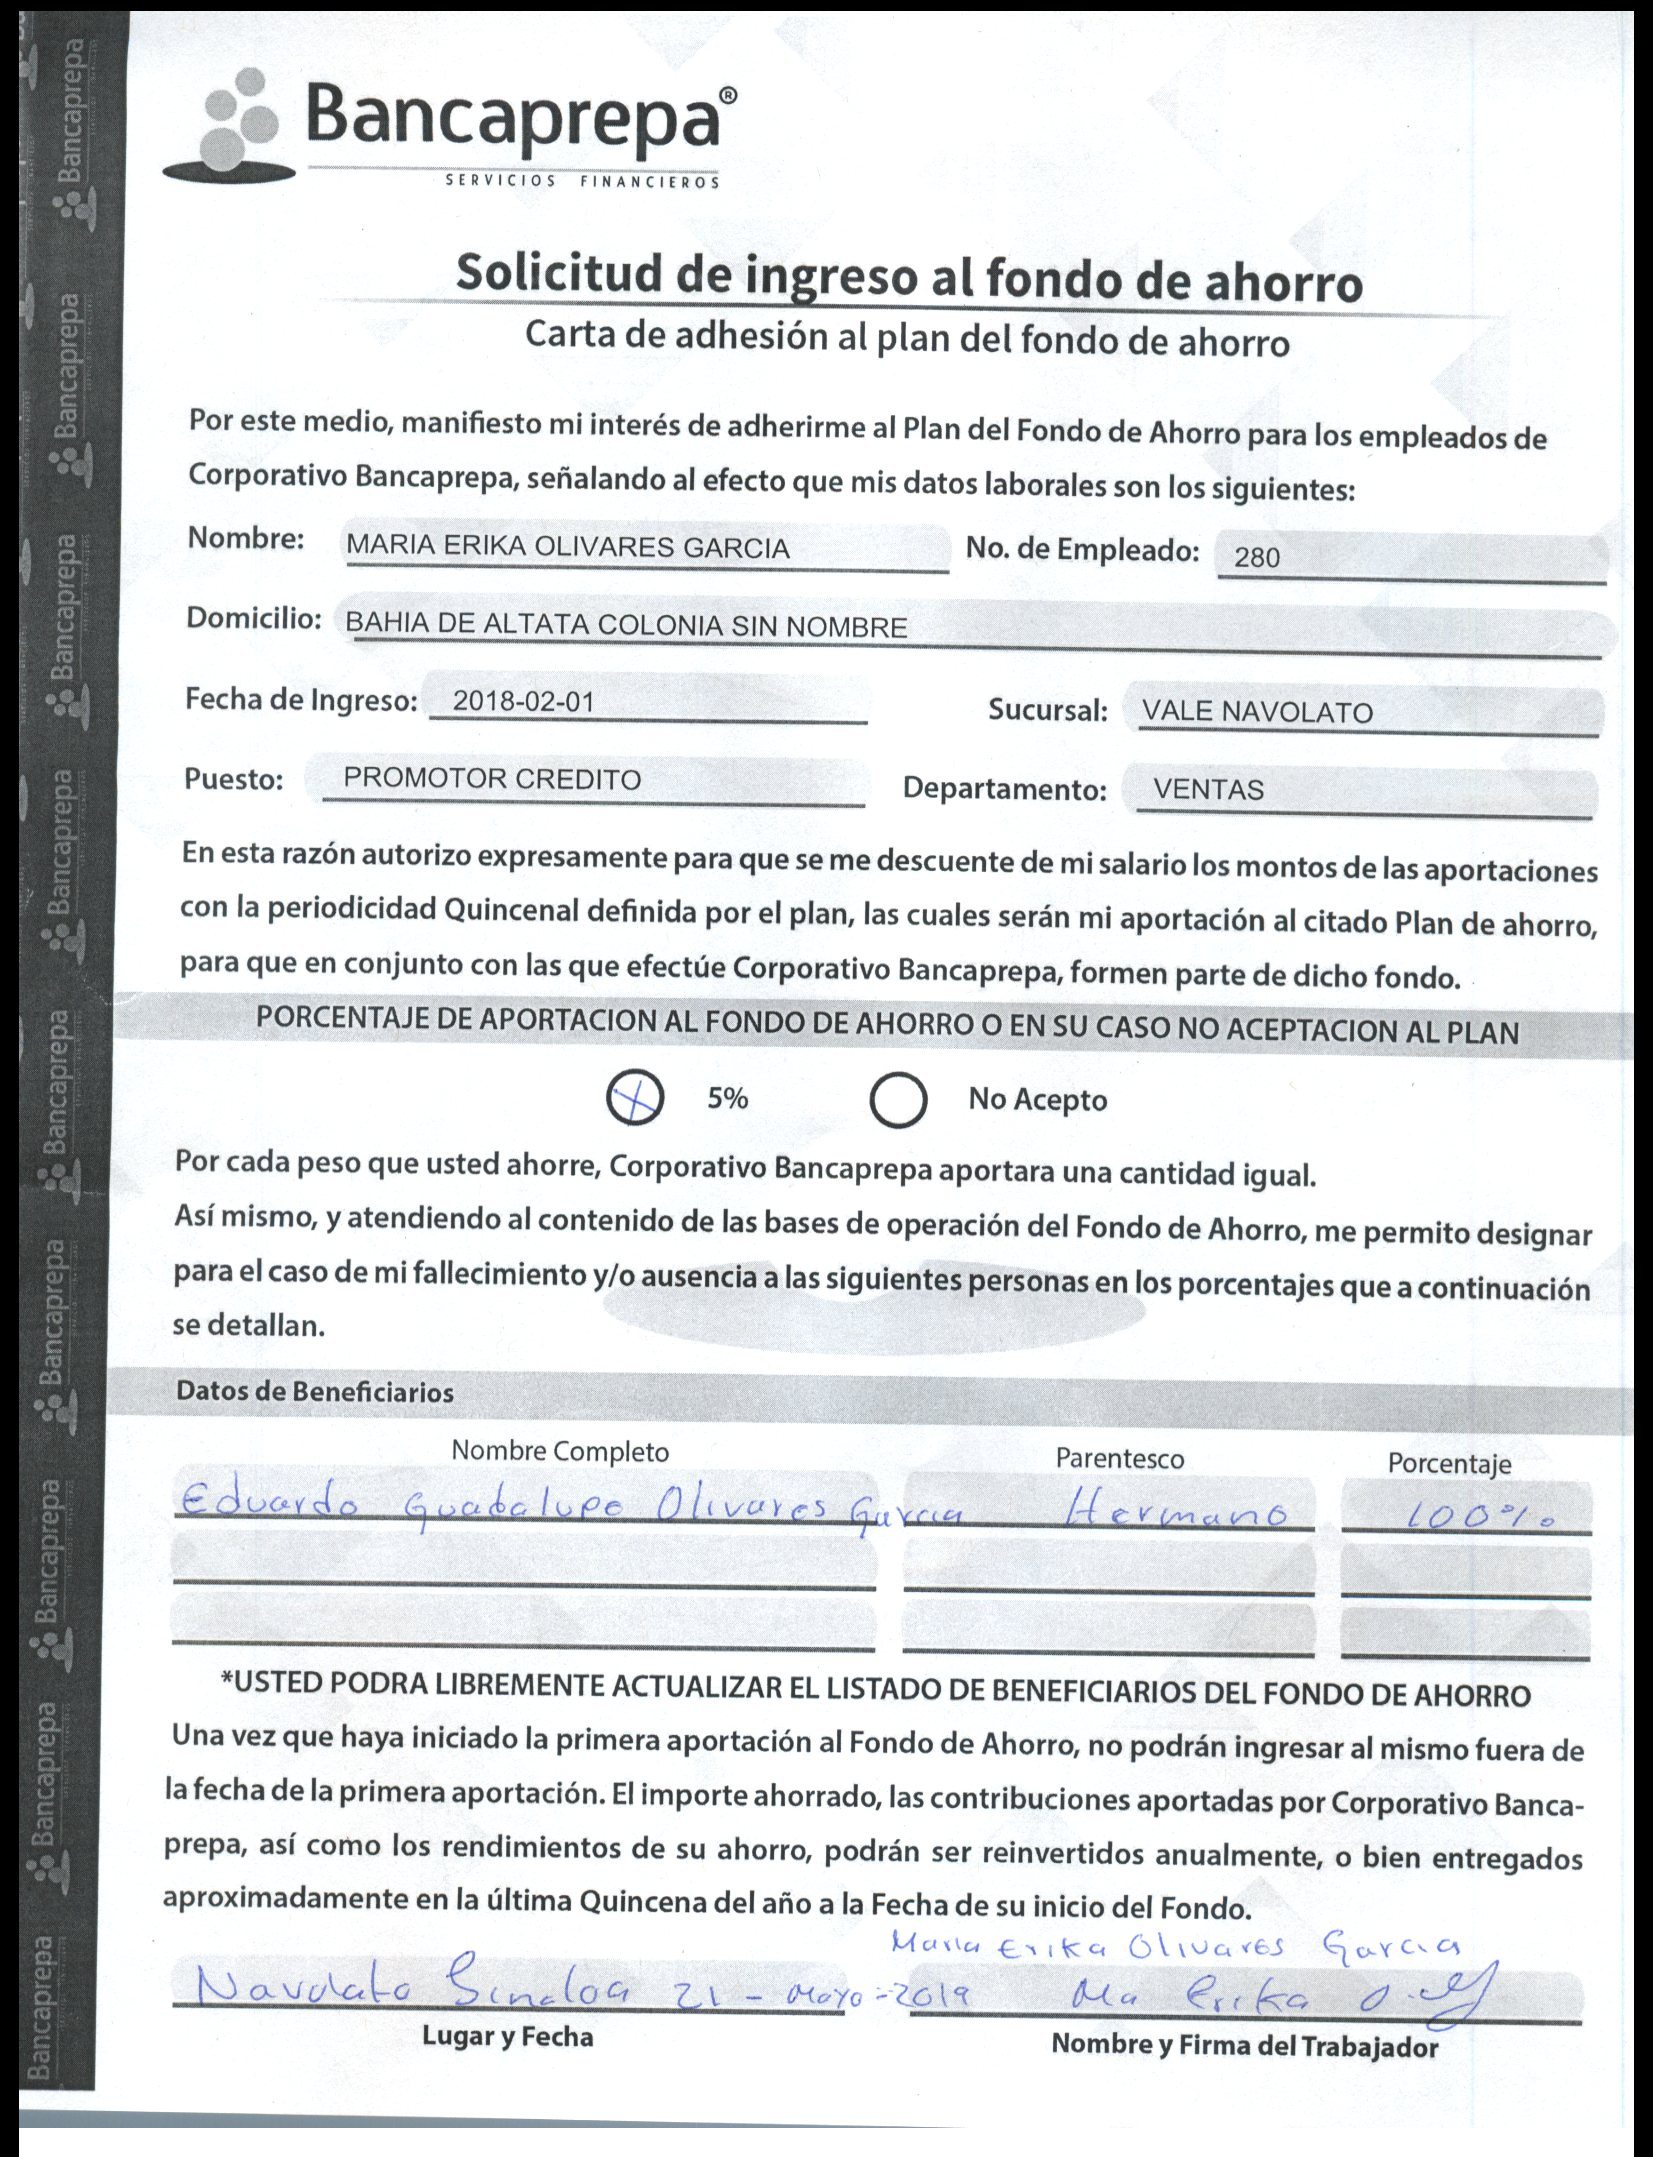 Bancaprepa®
SERVICIOS FINANCIEROS
Solicitud de ingreso al fondo de ahorro
Carta de adhesión al plan del fondo de ahorro
Por este medio, manifiesto mi interés de adherirme al Plan del Fondo de Ahorro para los empleados de
Corporativo Bancaprepa, señalando al efecto que mis datos laborales son los siguientes:
Nombre: MARIA ERIKA OLIVARES GARCIA No. de Empleado: 280
Domicilio: BAHIA DE ALTATA COLONIA SIN NOMBRE
Fecha de Ingreso: 2018-02-01 Sucursal: VALE NAVOLATO
Puesto: PROMOTOR CREDITO Departamento: VENTAS
En esta razón autorizo expresamente para que se me descuente de mi salario los montos de las aportaciones
con la periodicidad Quincenal definida por el plan, las cuales serán mi aportación al citado Plan de ahorro,
para que en conjunto con las que efectúe Corporativo Bancaprepa, formen parte de dicho fondo.
PORCENTAJE DE APORTACION AL FONDO DE AHORRO O EN SU CASO NO ACEPTACION AL PLAN
5% No Acepto
Por cada peso que usted ahorre, Corporativo Bancaprepa aportara una cantidad igual.
Así mismo, y atendiendo al contenido de las bases de operación del Fondo de Ahorro, me permito designar
para el caso de mi fallecimiento y/o ausencia a las siguientes personas en los porcentajes que a continuación
se detallan.
Datos de Beneficiarios
Nombre Completo Parentesco Porcentaje
Eduardo Guadalupe Olivares Garcia Hermano 100%
*USTED PODRA LIBREMENTE ACTUALIZAR EL LISTADO DE BENEFICIARIOS DEL FONDO DE AHORRO
Una vez que haya iniciado la primera aportación al Fondo de Ahorro, no podrán ingresar al mismo fuera de
la fecha de la primera aportación. El importe ahorrado, las contribuciones aportadas por Corporativo Banca-
prepa, así como los rendimientos de su ahorro, podrán ser reinvertidos anualmente, o bien entregados
aproximadamente en la última Quincena del año a la Fecha de su inicio del Fondo.
Maria Erika Olivares Garcia
Navolato Sinaloa 21 - Mayo - 2019 Ma Erika O.
Lugar y Fecha Nombre y Firma del Trabajador
Bancaprepa
Bancaprepa
Bancaprepa
Bancaprepa
Bancaprepa
Bancaprepa
Bancaprepa
Bancaprepa
Bancaprepa